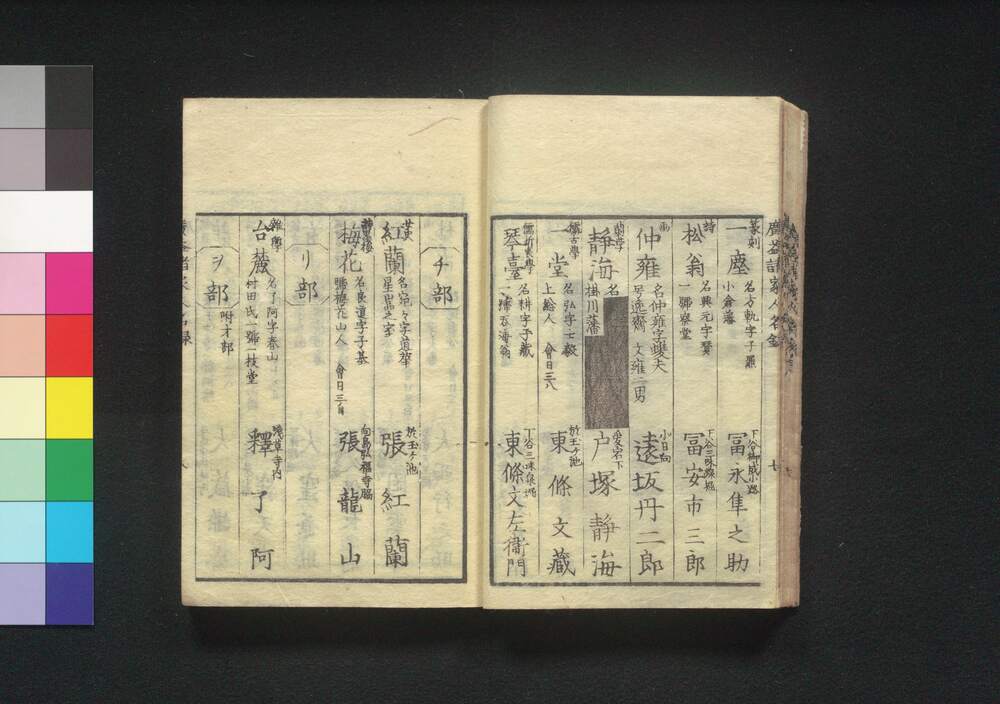 篆刻
一塵
名方軌字子羆
小倉藩
下谷御成小路
冨永隼之助
詩
松翁
名興元字賛
一號察堂
下谷三味線堀
冨安市三郎
画
仲雍
名仲雍字雙夫
号逸齋 文雍二男
小日向
遠坂丹二郎
蘭学
靜海
名
掛川藩
愛宕下
戸塚靜海
儒古學
一堂
名弘字士毅
上総人 會日三八
於玉ケ池
東條文藏
儒折衷學
琴臺
名耕字子藏
一号呑海翁
下谷三味線堀
東條文左衛門
チ部
紅蘭
名宛々字道華
星巖之室
於玉ケ池
張紅蘭
詩書
梅花
名臣道字子基
號梅花山人 會日三自
向島弘福寺脇
張龍山
リ部
雜學
台麓
名了阿字春山
付田氏一號一枝堂
浅草寺内
釋了阿
ヲ部
附オ部